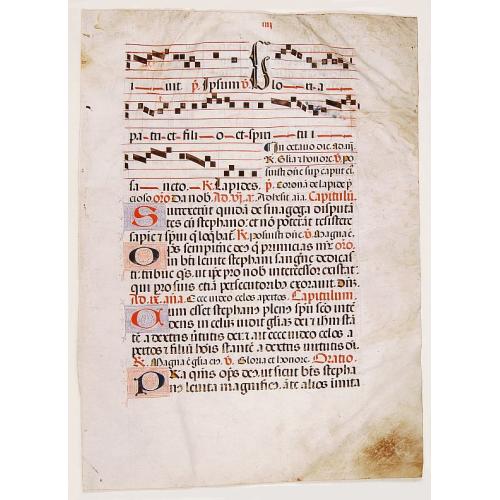 iiij
i — vit. p̄. Ipsum. v̄. Glo — ri — a
pa — tri — et — fili — o — et — spiri — tu i —
In octavo die. ad .iij.
R. Glia ⁊ honore. v̄. po
suisti dñe sup caput ei.
sa — ncto. — R. Lapides. p̄. Corona de lapide p̄
cioso. oro Da nob. Ad .vi. a. Adhesit aīa. Capitulū.
Surrexerūt quidā de sinagoga disputā
tes cū stephano: et nō poterāt resistere
sapiē ⁊ spiri q̄ loqbat̄. R. posuisti dñe. v̄. Magna ē.
Ops sempitne deus q primicias mr̄. oro.
in bti levite stephani sanguīe dedicas
ti: tribue qs. ut ip̄e pro nob intercessor existat:
qui pro suis etiā persecutorib exoravit. Dñz.
Ad .ix. aña. Ecce video celos aptos. Capitulum.
Cum esset stephan plenus spū sco intē
dens in celū: vidit gliaz dei: ⁊ ihm stā
tē a dextris v̄tutis dei: ⁊ ait ecce video celos a
pertos ⁊ filiū hoīs stantē a dextris virtutis di.
R. Magna ē glia eī. v̄. Gloria et honore. Oratio.
Pra qms ops deus. ut sicut bts stepha
nus levita magnificus. āte alios imita